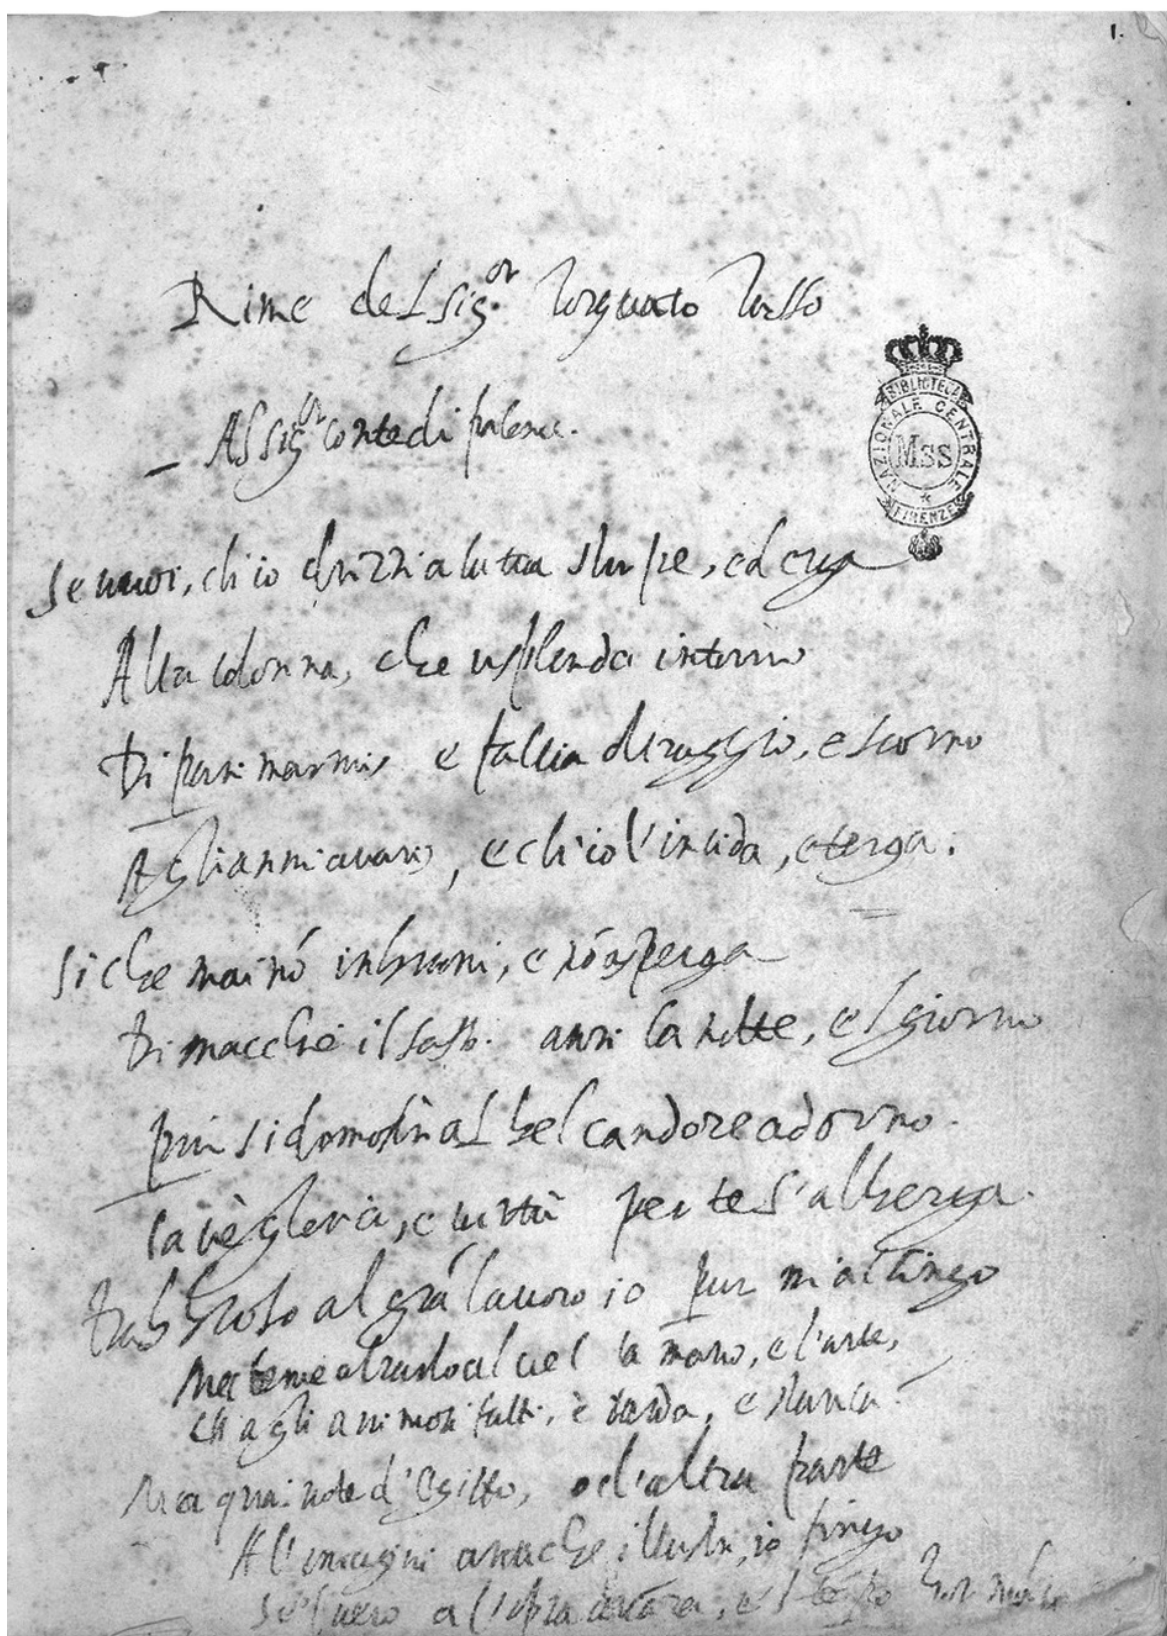 1.
Rime del sig.or Torquato Tasso
Al sig.or conte di palena.
BIBLIOTECA
NAZIONALE CENTRALE
Mss
FIRENZE
Se vuoi, ch'io drizzi a la tua stirpe, ed erga
Alta colonna, che risplenda intorno
Di pari marmi, e faccia oltraggio, e scorno
Agli anni avari, e ch'io l'incida, e terga.
Si che mai nó imbruni, e nó asperga
Di macchie il sasso. anzi la notte, e 'l giorno
piu si dimostri al bel candore adorno.
la vè gloria, e virtù per te s'alberga.
al grá lavoro io pur m'accingo
Ma teme alzando al ciel la mano, e l'arte,
Ch'agli animosi fatti, è tarda, e stanca.
Ma quai note d'Egitto, o d'altra parte
A l'imagini antiche illustri, io fingo